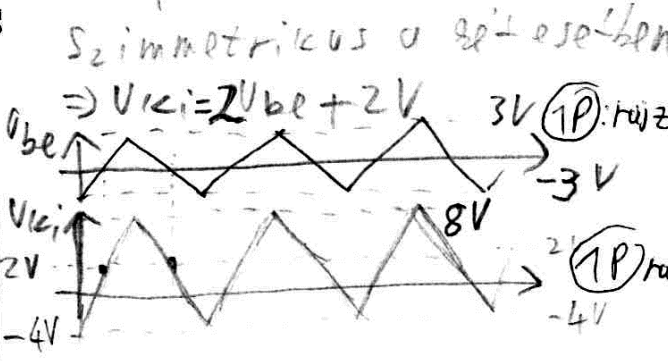 Szimmetrikus a két esetben
⇒ Uki=2Ube+2V
3V 1P:rajz
Ube
-3V
Uki
8V
2V 2 1P ra
-4V -4V